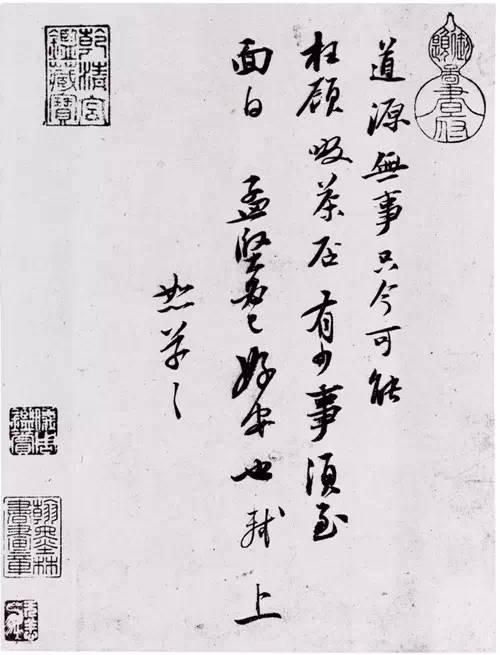 道源無事只今可能
枉顧啜茶否有少事須至
面白 孟堅必已好安也 軾上
恕草草
乾清宮鑑藏寶
翰墨林書畫章